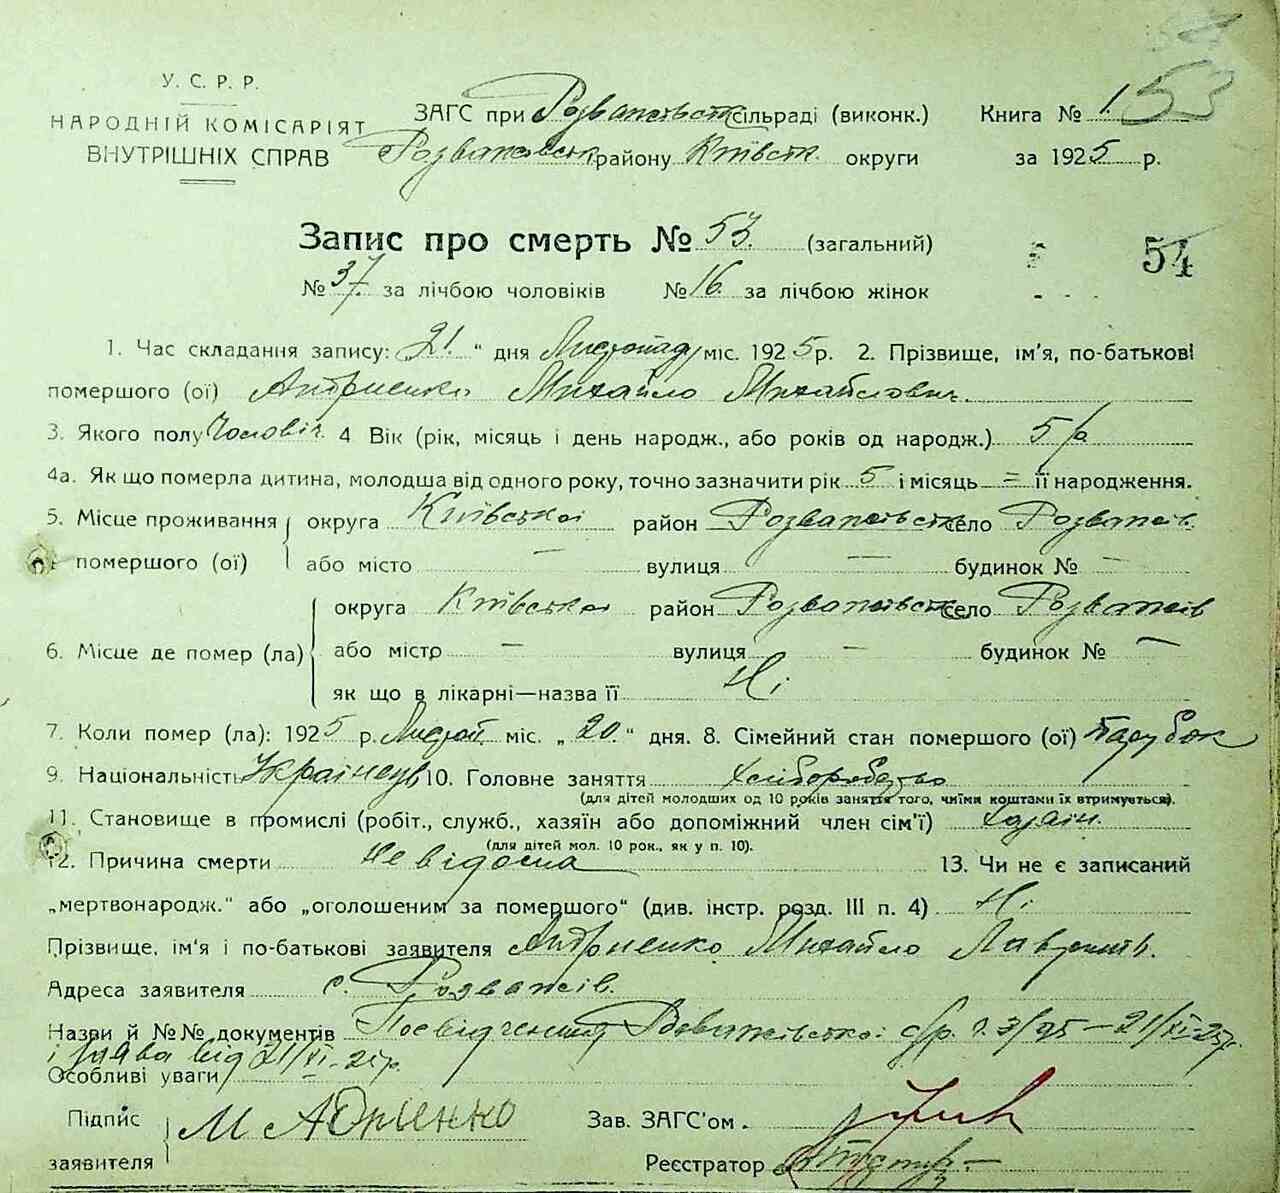 54
У. С. Р. Р.
НАРОДНІЙ КОМІСАРІЯТ
ВНУТРІШНІХ СПРАВ
ЗАГС при Розважівськ сільраді (виконк.) Книга № 1. 53
Розважівськ. району Київськ. округи за 1925 р.
Запис про смерть № 53. (загальний) 54
№ 37. за лічбою чоловіків № 16. за лічбою жінок
1. Час складання запису: „21." дня Листопад міс. 1925 р. 2. Прізвище, ім'я, по-батькові
помершого (ої) Андриенко Михайло Михайлович.
3. Якого полу Чоловіч. 4 Вік (рік, місяць і день народж., або років од народж.) 5 р
4а. Як що померла дитина, молодша від одного року, точно зазначити рік 5 і місяць = її народження.
5. Місце проживання помершого (ої) округа Київської район Розважівськ село Розважів
або місто — вулиця — будинок № —
6. Місце де помер (ла) округа Київської район Розважівськ село Розважів
або місто — вулиця — будинок № —
як що в лікарні—назва її Ні
7. Коли помер (ла): 1925 р. Листоп. міс. „20." дня. 8. Сімейний стан помершого (ої) парубок
9. Національність Українець 10. Головне заняття Хліборобство
(для дітей молодших од 10 років заняття того, чиїми коштами їх втримується).
11. Становище в промислі (робіт., служб., хазяїн або допоміжний член сім'ї) хазаін.
(для дітей мол. 10 рок., як у п. 10).
12. Причина смерти Невідома 13. Чи не є записаний
„мертвонародж." або „оголошеним за помершого" (див. інстр. розд. III п. 4) Ні
Прізвище, ім'я і по-батькові заявителя Андриенко Михайло Лаврент.
Адреса заявителя с. Розважів.
Назви й №№ документів Посвідчення Розважівської с/р. 21/XI-25р.
і заява від 21/XI-25р.
Особливі уваги
Підпис заявителя М Адриенко Зав. ЗАГС'ом
Реєстратор